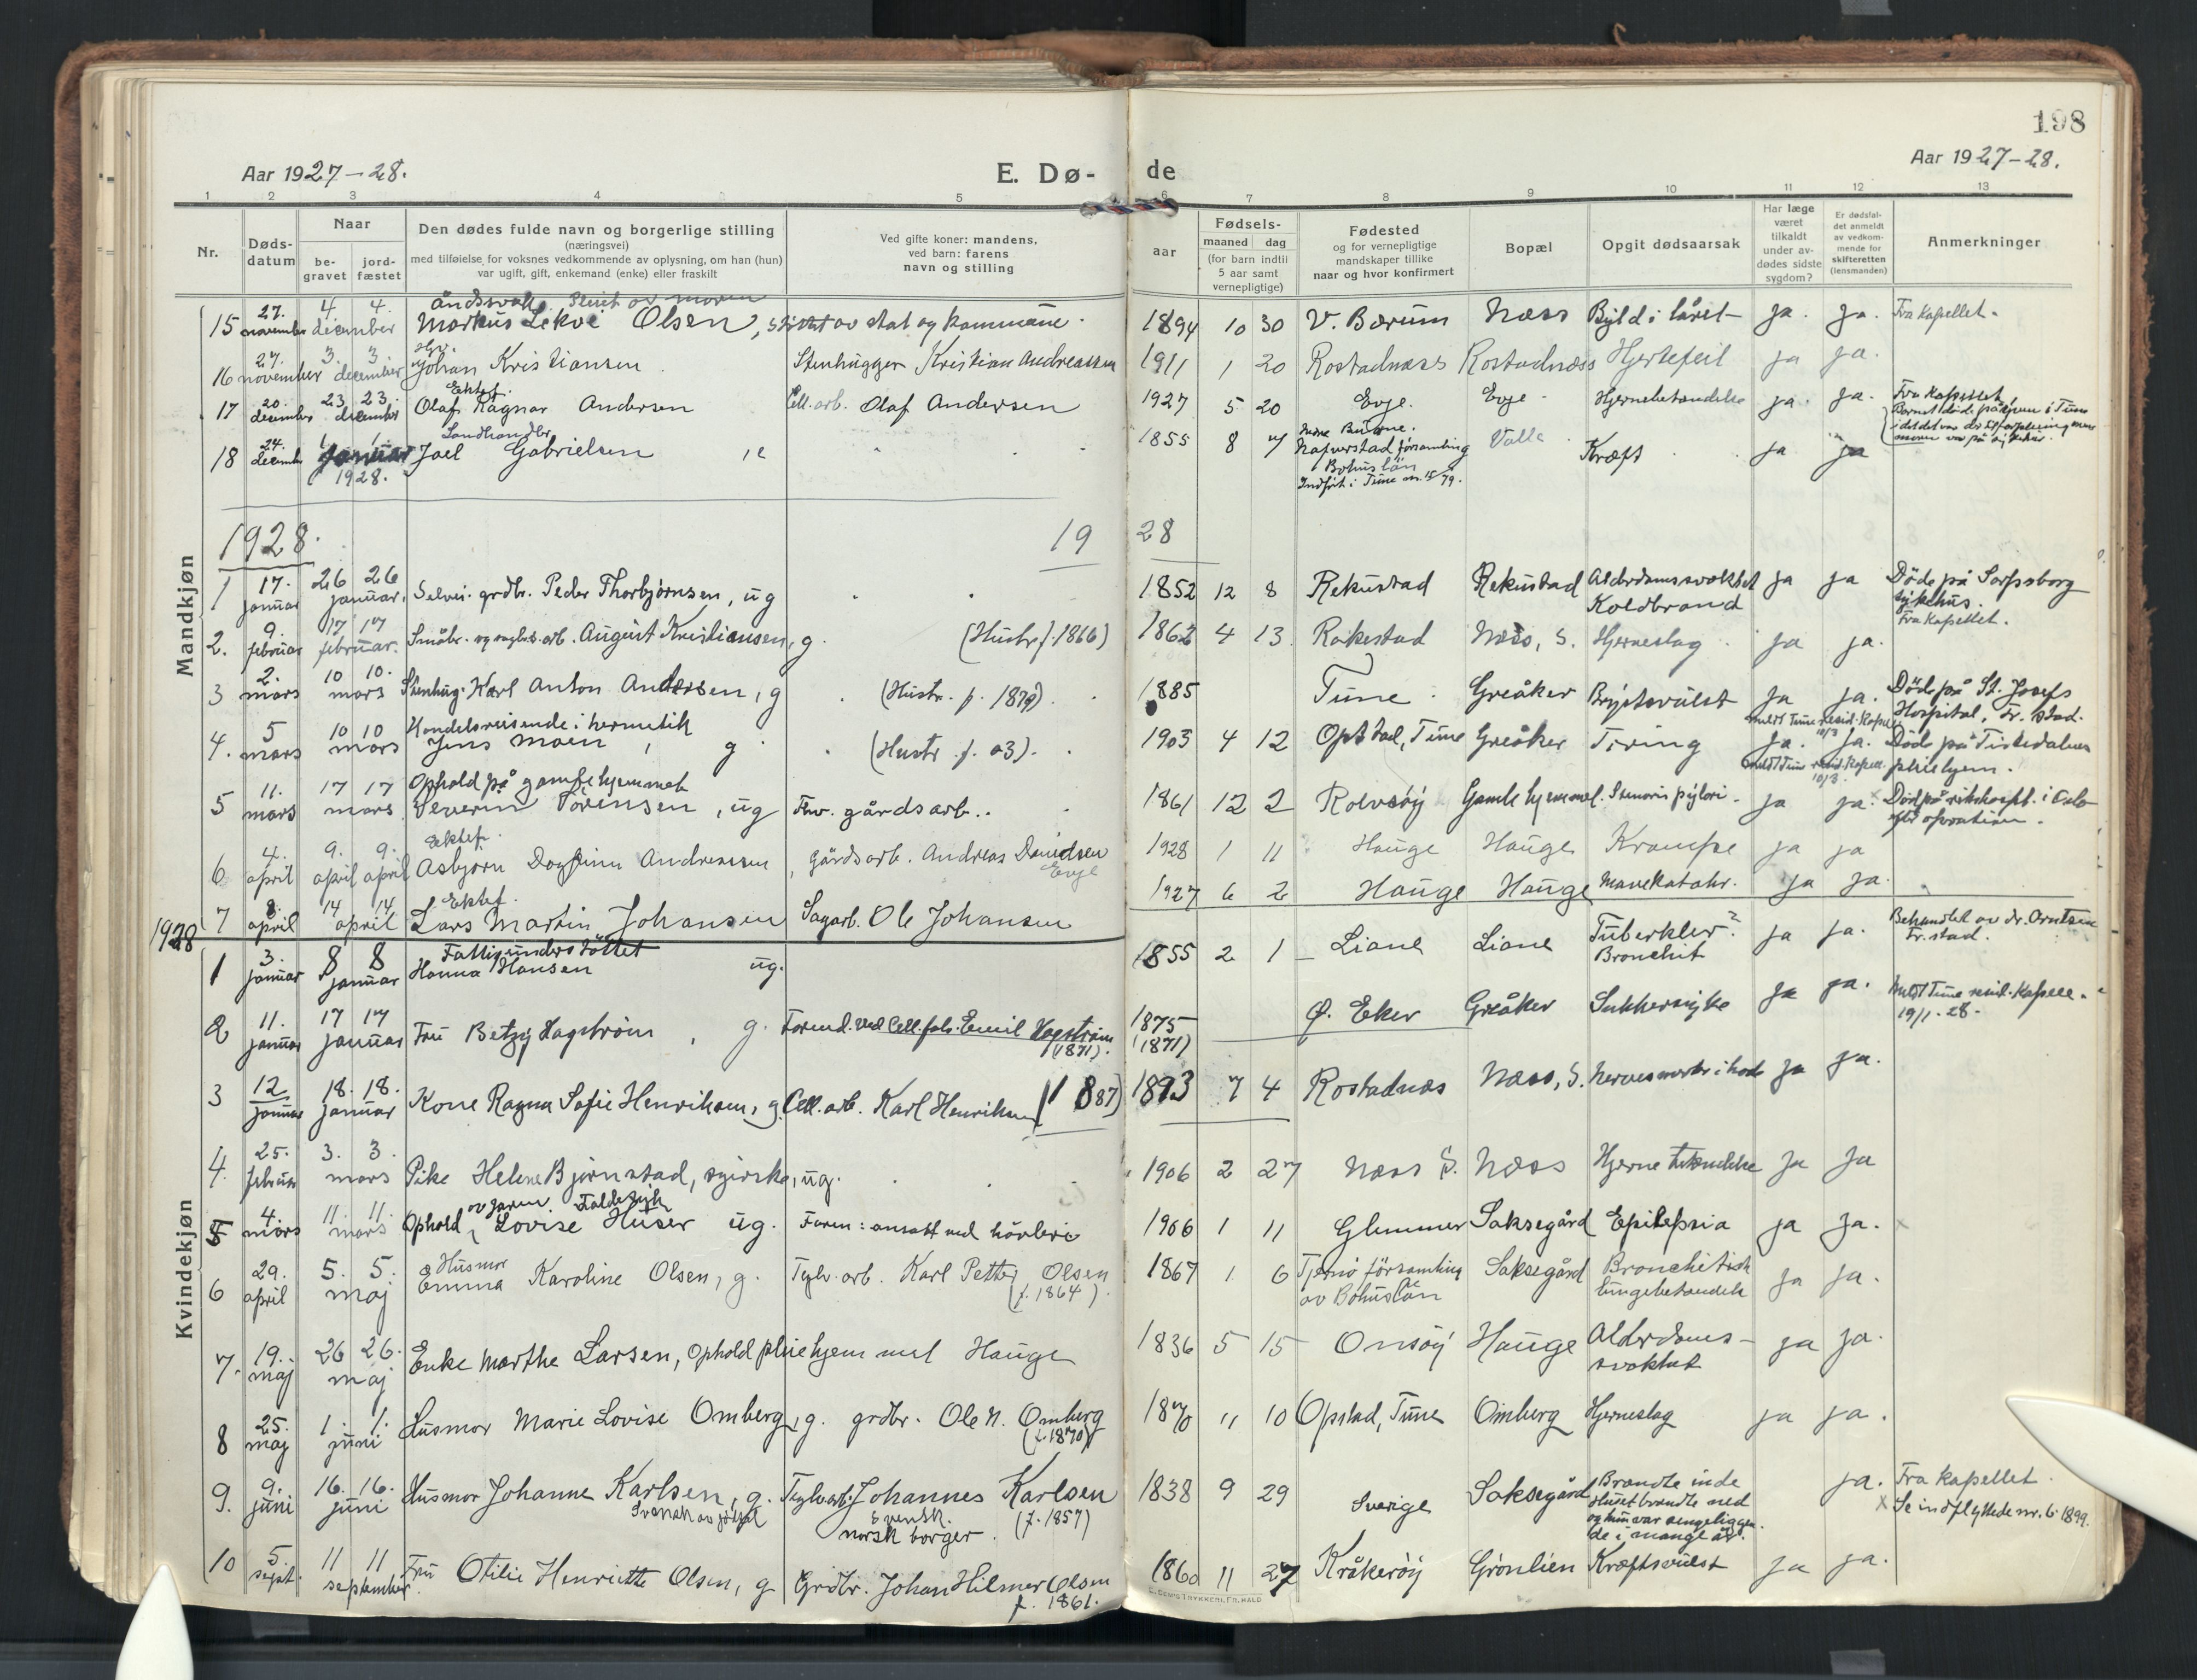 198
Aar 1927-28.
E. Dø-
de
Aar 1927-28.
1 2 3 4 5 6 7 8 9 10 11 12 13
Nr.
Døds-
datum
Naar
be-
gravet
jord-
fæstet
Den dødes fulde navn og borgerlige stilling
(næringsvei)
med tilføielse for voksnes vedkommende av oplysning, om han (hun)
var ugift, gift, enkemand (enke) eller fraskilt
Ved gifte koner: mandens,
ved barn: farens
navn og stilling
Fødsels-
aar
maaned dag
(for barn indtil
5 aar samt
vernepligtige)
Fødested
og for vernepligtige
mandskaper tillike
naar og hvor konfirmert
Bopæl
Opgit dødsaarsak
Har læge
været
tilkaldt
under av-
dødes sidste
sygdom?
Er dødsfal-
det anmeldt
av vedkom-
mende for
skifteretten
(lensmanden)
Anmerkninger
Mandkjøn
15 27. november 4. 4. december Åndssvak. Markus Lekve Olsen, av stat og kommune. 1894 10 30 V. Bærum Næss Byld i låret ja. ja. Fra kapellet.
16 27. november 3. 3. december Johan Kristiansen Stenhugger Kristian Andreassen 1911 1 20 Rostadnæss Rostadnæss Hjertefeil ja ja.
17 20. december 23 23. december Ektef. Olaf Ragnar Andersen Cell.arb. Olaf Andersen 1927 5 20 Evje. Evje Hjernebetændelse ja. ja. Fra kapellet,
18 24. december 1 1 januar 1928. Landhandler Joel Gabrielsen 1855 8 7 Nafverstad församling Bohuslän Valle Kræft ja ja
1928.
19 28
1 17. januar 26 26 januar. Selvei. grdbr. Peder Thorbjørnsen, ug 1852 12 8 Rekustad Rekustad Alderdomssvakhet Koldbrand ja ja Døde på Sarpsborg sykehus. Fra kapellet.
2. 9. februar 17 17 februar. Småbr. og arb. August Kristiansen, g. (Hustr. f. 1866) 1862 4 13. Rakestad Næss, S. Hjerneslag ja ja.
3 2. mars 10 10. mars Stenhug. Karl Anton Andersen, g (Hustr. f. 1879) 1885 Tune Greåker Brystsvulst ja ja. Døde på St. Josefs Hospital, Fr.stad.
4. 5 mars 10 10 mars Handelsreisende i hermetik Jens Moen, g (Hustr f. 03). 1903 4 12 Opstad, Tune Greåker Tæring ja. ja. Døde på Tistedalens pleiehjem.
5 11. mars 17 17 mars Ophold på gamlehjemmet Severin Sörensen, ug Fhv. gårdsarb.. 1861 12 2 Rolvsöy Gamlehjemmet. Stenosis pylori ja ja. Död på rikshospt. i Oslo efter operation.
6 4. april 9. 9. april april Ektef. Asbjørn Dagfinn Andreassen, gårdsarb. Andreas Davidsen Evje 1928 1 11 Hauge Hauge Krampe ja ja
7 8. april 14 14 april Ektef. Lars Martin Johansen Sagarb. Ole Johansen 1927 6 2 Hauge Hauge Mavekatahr. ja ja.
1928
Kvindekjøn
1 3. januar 8 8 januar Fattigunderstöttet Hanna Hansen ug. 1855 2 1 Liane Liane Tuberkler? Bronchit ja ja. Behandlet av dr. Arntzen Fr.stad.
2 11. januar 17 17 januar Fru Betzy Hagström, g. Formd. ved Cell.fab. Emil Hagström (1871). 1875 (1871) Ø. Eker Greåker Sukkersyke ja ja. Meldt Tune resid. Kapell. 19/1-28-
3 12 januar 18. 18. januar Kone Ragna Sofie Henriksen, g. Cell.arb. Karl Henriksen (1887) 1893 7 4 Rostadnæs Næss, S. Nervesmerter i hode ja ja.
4. 25. februar 3. 3. mars Pike Helene Bjørnstad, syerske, ug. 1906 2 27 Næss S. Næss Hjernebetændelse ja ja
5 4. mars 11. 11. mars Ophold av faren. Faldesyk Lovise Huser ug. Faren: ansatt ved hövleri 1906 1 11 Glemmer Saksegård Epilepsia ja ja.
6 29. april 5. 5. maj Husmor Emma Karoline Olsen, g. Teglv.arb. Karl Petter Olsen (f. 1864). 1867 1 6 Tjernö församling av Bohuslän Saksegård Bronchitisk lungebetændelse ja ja.
7. 19. maj 26 26. maj Enke Marthe Larsen, Ophold pleiehjem ved Hauge 1836 5 15 Onsöy Hauge Alderdoms-svakhet ja ja.
8 25. maj 1. 1. juni Husmor Marie Lovise Omberg, g. grdbr. Ole N. Omberg (f. 1870) 1870 11 10 Opstad, Tune Omberg Hjerneslag ja ja.
9. 9. juni 16. 16. juni Husmor Johanne Karlsen, g. Svensk av födsel Teglv.arb. Johannes Karlsen svensk. norsk borger. (f. 1857) 1838 9 29 Sverige Saksegård Brandte inde Huset brændte ned og hun var sengeliggende i mange år. ja. Fra kapellet. x Se indflyttede nr. 6. 1899.
10 5. sept. 11 11 september. Fru Otilie Henriette Olsen, g Grdbr. Johan Hilmer Olsen f. 1861. 1860 11 27 Kråkeröy Grönlien Kræftsvulst ja ja.